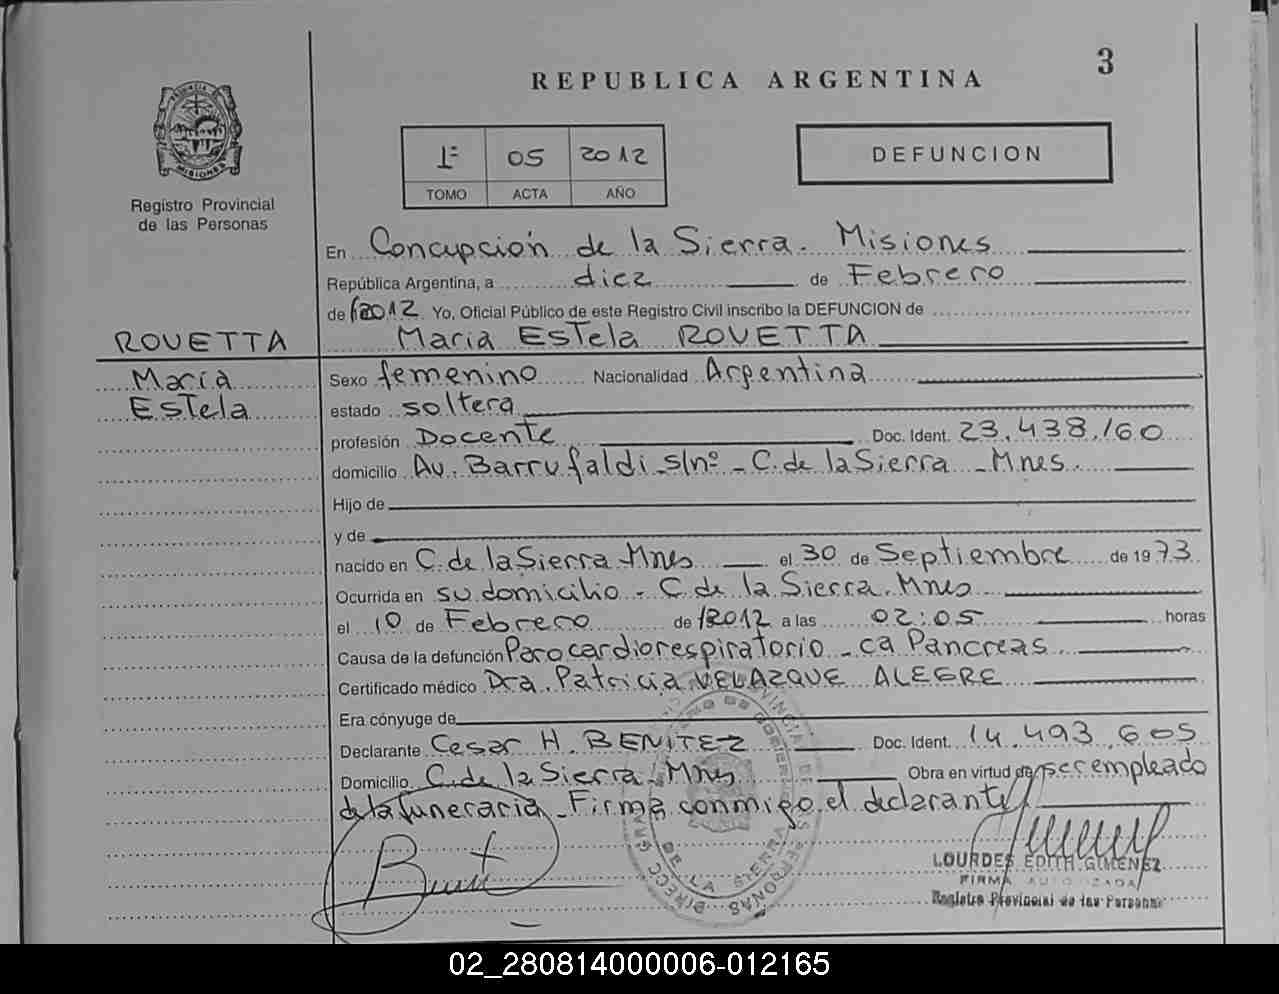 REPUBLICA ARGENTINA
3
1º 05 2012
TOMO ACTA AÑO
DEFUNCION
PROVINCIA
MISIONES
Registro Provincial
de las Personas
En Concepción de la Sierra - Misiones
República Argentina, a diez de Febrero
de 2012 Yo, Oficial Público de este Registro Civil inscribo la DEFUNCION de
ROVETTA Maria Estela ROVETTA
Maria Sexo femenino Nacionalidad Argentina
Estela estado soltera
profesión Docente Doc. Ident. 23.438.160
domicilio Av. Barrufaldi s/nº - C. de la Sierra - Mnes.
Hijo de
y de
nacido en C. de la Sierra Mnes el 30 de Septiembre de 1973
Ocurrida en su domicilio - C. de la Sierra. Mnes
el 10 de Febrero de 2012 a las 02:05 horas
Causa de la defunción Paro cardiorespiratorio - ca Pancreas
Certificado médico Dra. Patricia VELAZQUE ALEGRE
Era cónyuge de
Declarante Cesar H. BENITEZ Doc. Ident. 14.493.605
Domicilio C. de la Sierra - Mnes Obra en virtud de ser empleado
de la funeraria - Firma conmigo el declarante
DE LA SIERRA
LOURDES EDITH GIMENEZ
FIRMA AUTORIZADA
Registro Provincial de las Personas
02_280814000006-012165